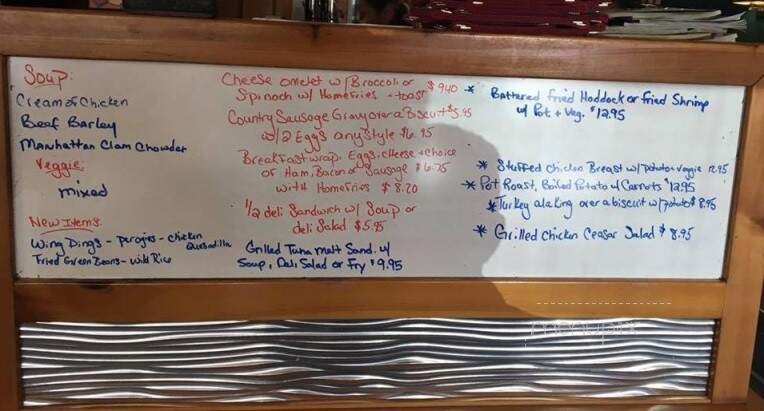 Soup:
Cream of Chicken
Beef Barley
Manhattan Clam Chowder
Veggie:
mixed
New Items
Wing Dings - Perojies - chicken
Quesadilla
Fried Green Beans - Wild Rice
Cheese omelet w/Broccoli or
Spinach w/ Homefries + toast $9.40
Country Sausage Gravy over a Biscuit $5.95
w/2 Eggs any style $6.95
Breakfast wrap. Eggs, cheese + choice
of Ham, Bacon or Sausage $6.75
with Homefries $8.20
1/2 deli Sandwich w/ Soup or
deli Salad $5.95
Grilled Tuna malt Sand. w/
Soup, Deli Salad or Fry $9.95
* Battered fried Haddock or fried Shrimp
w/ Pot + Veg. $12.95
* Stuffed chicken Breast w/ potato + veggie 12.95
* Pot Roast, Boiled Potato w/ Carrots $12.95
* Turkey alaking over a biscuit w/ potato $8.95
* Grilled chicken Ceasar Salad $8.95